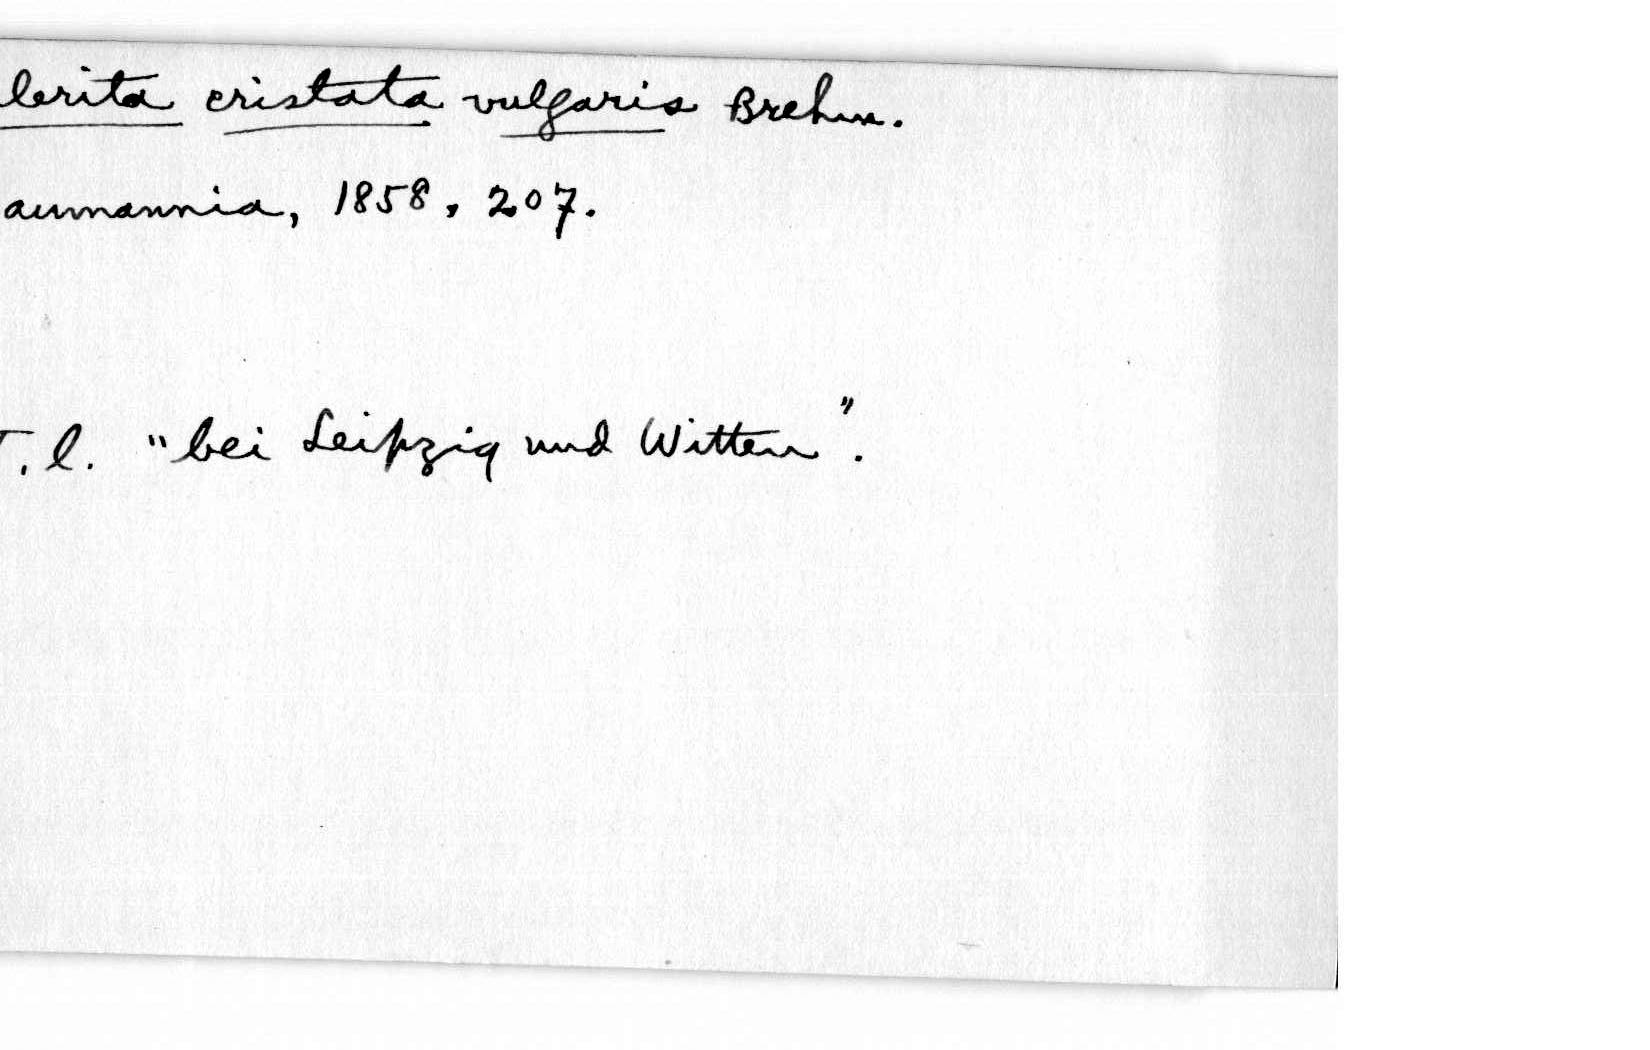 lerita cristata vulgaris Brehm.
aumannia, 1858, 207.
T.l. "bei Leipzig und Witten".